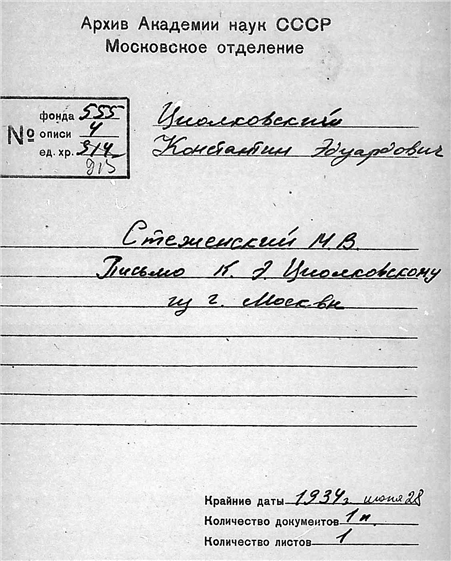 Архив Академии наук СССР
Московское отделение
№
фонда 555
описи 4
ед. хр. 514
Циолковский
Константин Эдуардович
Стеженский М. В.
Письмо К. Э Циолковскому
из г. Москвы
Крайние даты 1934 г. июня 28
Количество документов 1 п.
Количество листов 1